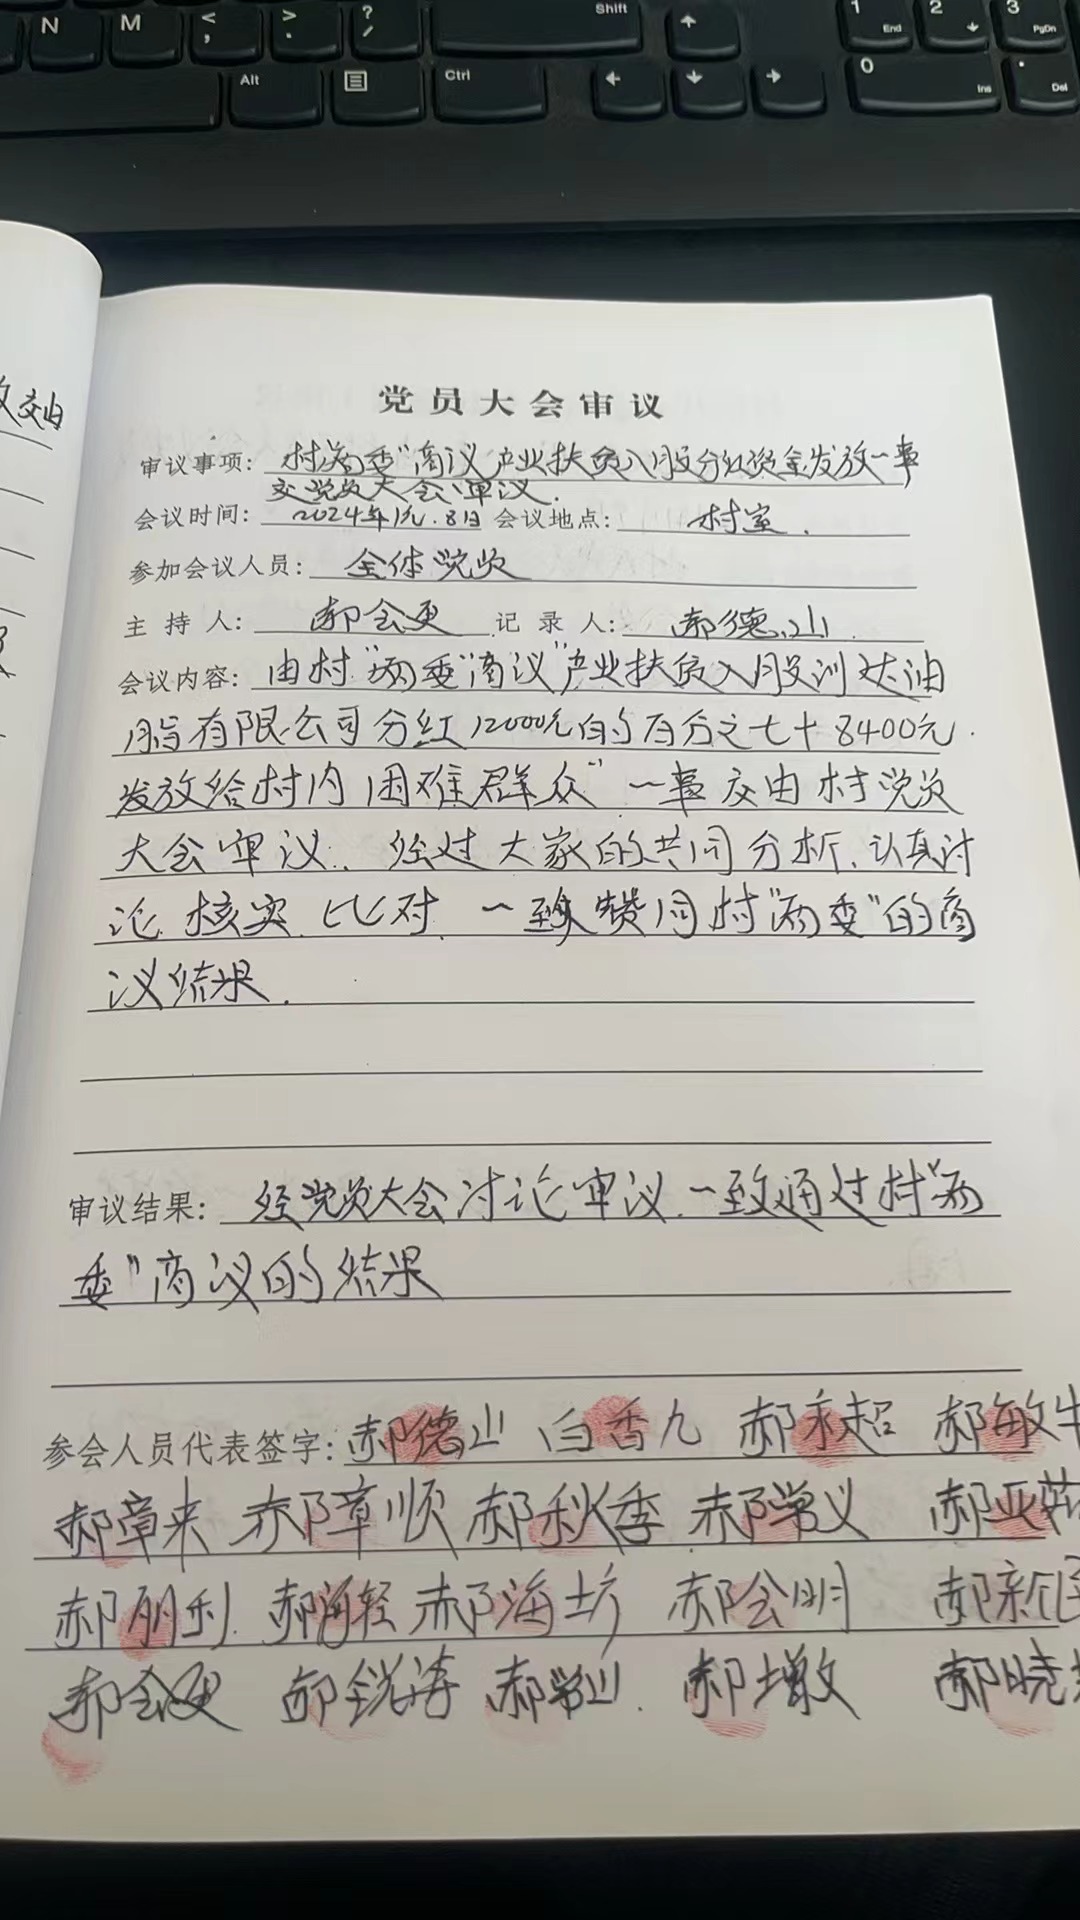 N M < , > . ? / Shift 1 End 2 3 PgDn
Alt Ctrl 0 Ins . Del
交由
党员大会审议
审议事项: 村"两委"商议产业扶贫入股分红资金发放一事
交党员大会审议.
会议时间: 2024年1元.8日 会议地点: 村室.
参加会议人员: 全体党员
主持人: 郝会更 记录人: 郝德山
会议内容: 由村"两委"商议"产业扶贫入股训达油
脂有限公司分红12000元的百分之七十8400元.
发放给村内困难群众"一事交由村党员
大会审议. 经过大家的共同分析、认真讨
论、核实、比对、一致赞同村"两委"的商
议结果.
审议结果: 经党员大会讨论审议、一致通过村"两
委"商议的结果
参会人员代表签字: 郝德山 白香九 郝永超 郝敏牛
郝章来 郝章顺 郝秋季 郝学义 郝亚茹
郝朋利 郝海轻 郝海坊 郝会明 郝新
郝会更 郝锐涛 郝学山 郝增敏 郝晓